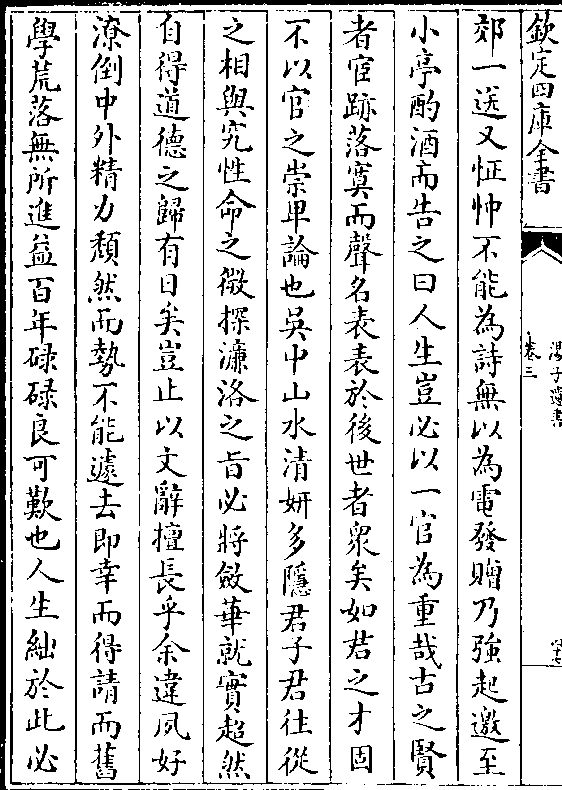 欽定四庫全書
湯子遺書
卷三
四十七
郊一送又怔忡不能為詩無以為電發贈乃強起邀至
小亭酌酒而告之曰人生豈必以一官為重哉古之賢
者宦跡落寞而聲名表表於後世者衆矣如君之才固
不以官之崇卑論也吳中山水清妍多隱君子君往從
之相與究性命之微探濂洛之㫖必將斂華就實超然
自得道德之歸有日矣豈止以文辭擅長乎余違夙好
潦倒中外精力頽然而勢不能遽去即幸而得請而舊
學荒落無所進益百年碌碌良可歎也人生絀於此必